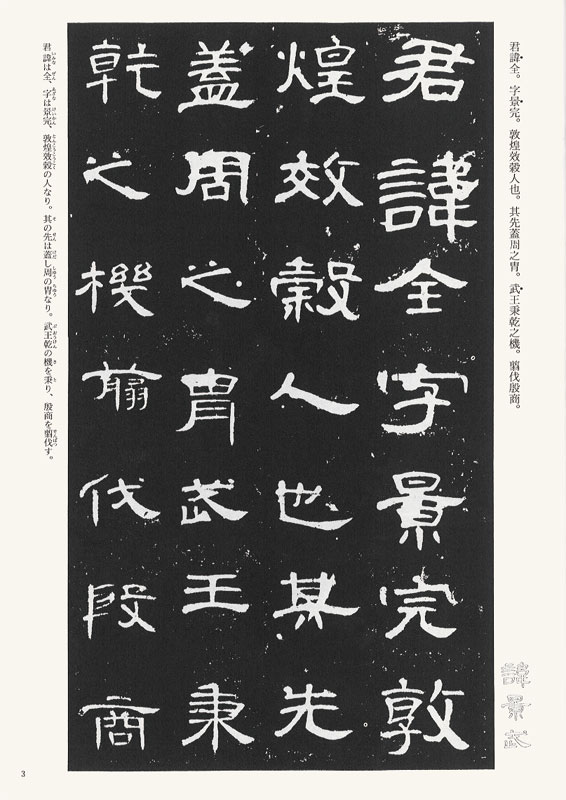 君諱全。字景完。敦煌效穀人也。其先蓋周之冑。武王秉乾之機。翦伐殷商。
君諱全字景完敦
煌效穀人也其先
蓋周之冑武王秉
乾之機翦伐殷商
諱景武
君諱は全、字は景完、敦煌效穀の人なり。其の先は蓋し周の冑なり。武王乾の機を秉り、殷商を翦伐す。
3